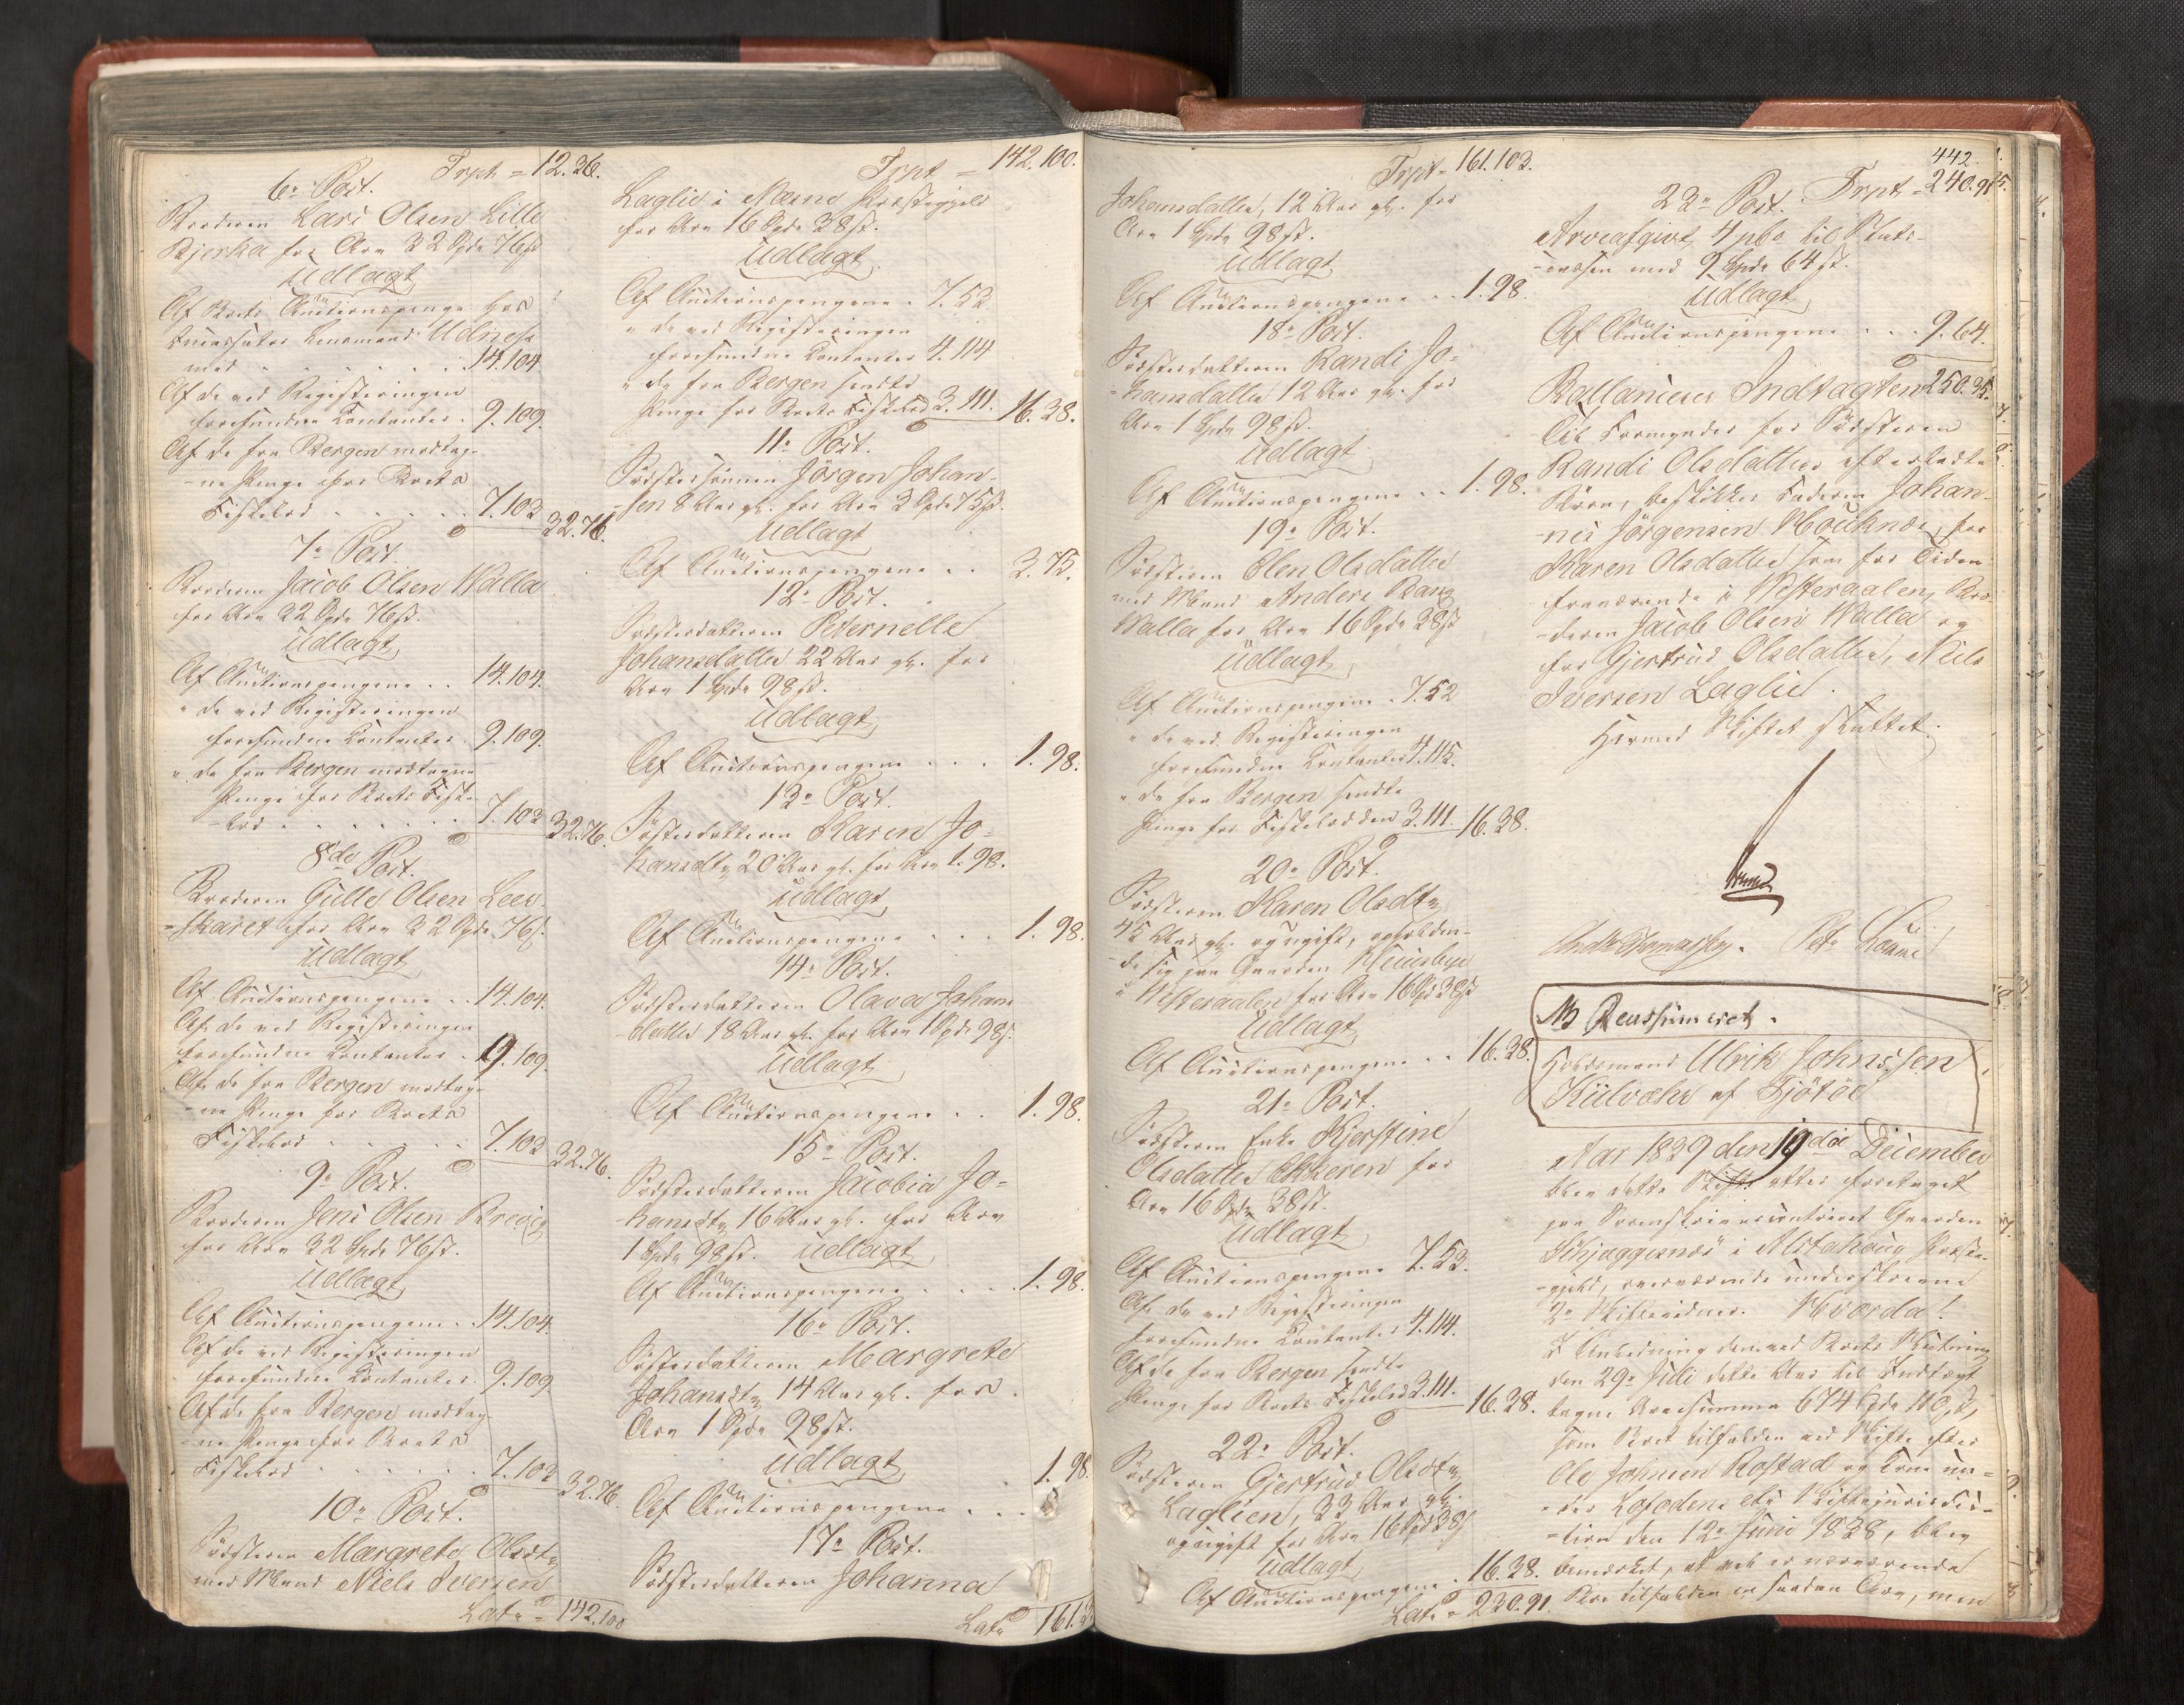 Trpt = 12.36.
6te Post.
Broderen Lars Olsen Lille
Bjerka for Arv 32 Spdr 76 ß
Udlagt
Af Boets Auctionspenge hos
Incassator Lensmand Udnes
med . . . . . 14.104
Af de ved Registeringen
forefundne Contanter . 9.109.
Af de fra Bergen modtag-
-ne Penge for Boets
Fiskelod . . . . . 7.103 32.76.
7de Post.
Broderen Jacob Olsen Walla
for Arv 32 Spdr 76 ß.
Udlagt
Af Auctionspengene . . 14.104.
" de ved Registeringen
forefundne Contanter . 9.109.
" de fra Bergen modtagne
Penge for Boets Fiske-
-lod . . . . . 7.103 32.76.
8de Post.
Broderen Gulle Olsen Leer-
-skaret for Arv 32 Spdr 76 ß.
Udlagt
Af Auctionspengene . . 14.104.
Af de ved Registeringen
forefundne Contanter . 9.109.
Af de fra Bergen modtag-
-ne Penge for Boets
Fiskelod . . . . . 7.103 32.76.
9de Post.
Broderen Jens Olsen Brevig
for Arv 32 Spdr 76 ß.
Udlagt
Af Auctionspengene . . 14.104.
Af de ved Registeringen
forefundne Contanter . 9.109.
Af de fra Bergen modtag-
-ne Penge for Boets
Fiskelod . . . . . 7.103 32.76.
10de Post.
Södsteren Margrete Olsdtr
med Mand Niels Iversen
Late = 142.100
Trpt = 142.100.
Laglie i Næsne Præstegjeld
for Arv 16 Spdr 38 ß.
Udlagt
Af Auctionspengene . 7.53.
" de ved Registeringen
forefundne Contanter 4.114
" de fra Bergen sendte
Penge for Boets Fiskelod 3.111. 16.38.
11te Post.
Södstersönnen Jörgen Johan-
-sen 8 Aar gl. for Arv 3 Spdr 75 ß.
Udlagt
Af Auctionspengene . . 3.75.
12te Post.
Södsterdatteren Peternelle
Johansdatter 22 Aar gl. for
Arv 1 Spdr 98 ß.
Udlagt
Af Auctionspengene . . . 1.98.
13de Post.
Södsterdatteren Karen Jo-
-hansdtr 20 Aar gl. for Arv 1.98.
Udlagt
Af Auctionspengene . . . 1.98.
14de Post.
Södsterdatteren Olava Johans
-datter 18 Aar gl. for Arv 1 Spdr 98 ß.
Udlagt
Af Auctionspengene . . 1.98.
15de Post.
Södsterdatteren Jacobia Jo-
-hansdtr 16 Aar gl. for Arv
1 Spdr 98 ß. Udlagt
Af Auctionspengene . . . . 1.98.
16de Post.
Södsterdatteren Margrete
Johansdtr 14 Aar gl. for
Arv 1 Spdr 98 ß.
Udlagt
Af Auctionspengene . . . 1.98.
17de Post.
Södsterdatteren Johanna
Late 161.
Trpt = 161.103.
Johansdatter, 12 Aar gl. for
Arv 1 Spdr 98 ß.
Udlagt
Af Auctionspengene . . 1.98.
18de Post.
Södsterdatteren Randi Jo-
-hansdatter 12 Aar gl. for
Arv 1 Spdr 98 ß.
Udlagt
Af Auctionspengene . . 1.98.
19de Post.
Södsteren Elen Olsdatter
med Mand Anders Bang
Walla for Arv 16 Spdr 38 ß
Udlagt
Af Auctionspengene . 7.52
" de ved Registeringen
forefundne Contanter 4.115.
" de fra Bergen sendte
Penge for Fiskelodden 3.111. 16.38.
20de Post.
Södsteren Karen Olsdtr
45 Aar gl. og ugift, opholden-
-de sig paa Gaarden
i Westeraalen for Arv 16 Spd 38 ß
Udlagt
Af Auctionspengene . . 16.38.
21de Post.
Södsteren Enke Kjerstine
Olsdatter for
Arv 16 Spdr 38 ß.
Udlagt
Af Auctionspengene 7.53.
Af de ved Registeringen
forefundne Contanter 4.114.
Af de fra Bergen sendte
Penge for Boets Fiskelod 3.111. 16.38.
22de Post.
Södsteren Gjertrud Olsdtr
Laglien, 33 Aar gl.
og ugift for Arv 16 Spd 38 ß
Udlagt
Af Auctionspengene . 16.38.
Late = 230.91.
442
23de Post. Trpt = 240.91
Arveafgivt 4 pCo til Stats-
-cassen med 9 Spdr 64 ß.
Udlagt
Af Auctionspengene . . . 9.64.
Ballancerer Indtægten 250.35.
Til Formynder for Södsteren
Randi Olsdatters efterladte
Börn, beskikkes Faderen Johan-
-nes Jörgensen for
Karen Olsdatter som for Tiden
fraværende i Vesteraalen, Bro-
-deren Jacob Olsen Walla og
for Gjertrud Olsdatter, Niels
Iversen Laglie.
Hermed Skiftet sluttet.
NB Reassumeret.
Ulrik Johnssen
Kiilvær af Tjötöe
Aar 1839 den 19de December
blev dette Skifte atter foretaget
paa Sorenskrivercontoiret Gaarden
Skjeggesnæs i Alstahoug Præste-
-gjeld, overværende underskrevne
2de Skiftevidner. Hvorda!
I Anledning den ved Boets Slutning
den 29de Juli dette Aar til Indtægt
tagne Arvesumma 674 Spdr 110 ß,
som Boet tilfalden ved Skifte efter
Ole Johnsen Rostad og Kone un-
-der Lofodens etc Skiftejurisdic-
-tion den 12te Juni 1838, blev
bemærket, at vel er nærværende
Boe tilfalden en saadan Arv, men